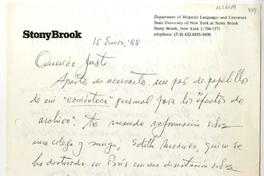 StonyBrook
Department of Hispanic Languages and Literature
State University of New York at Stony Brook
Stony Brook, New York 11794-3371
telephone: (516) 632-6935/6936
15 Enero, '88
Querido Justo,
Aparte de acercarte un par de papelillos
de mi personal para los "efectos de
archivo", te mando información sobre
una colega y amiga, Edith , quien se
ha doctorado en París con una disertación sobre